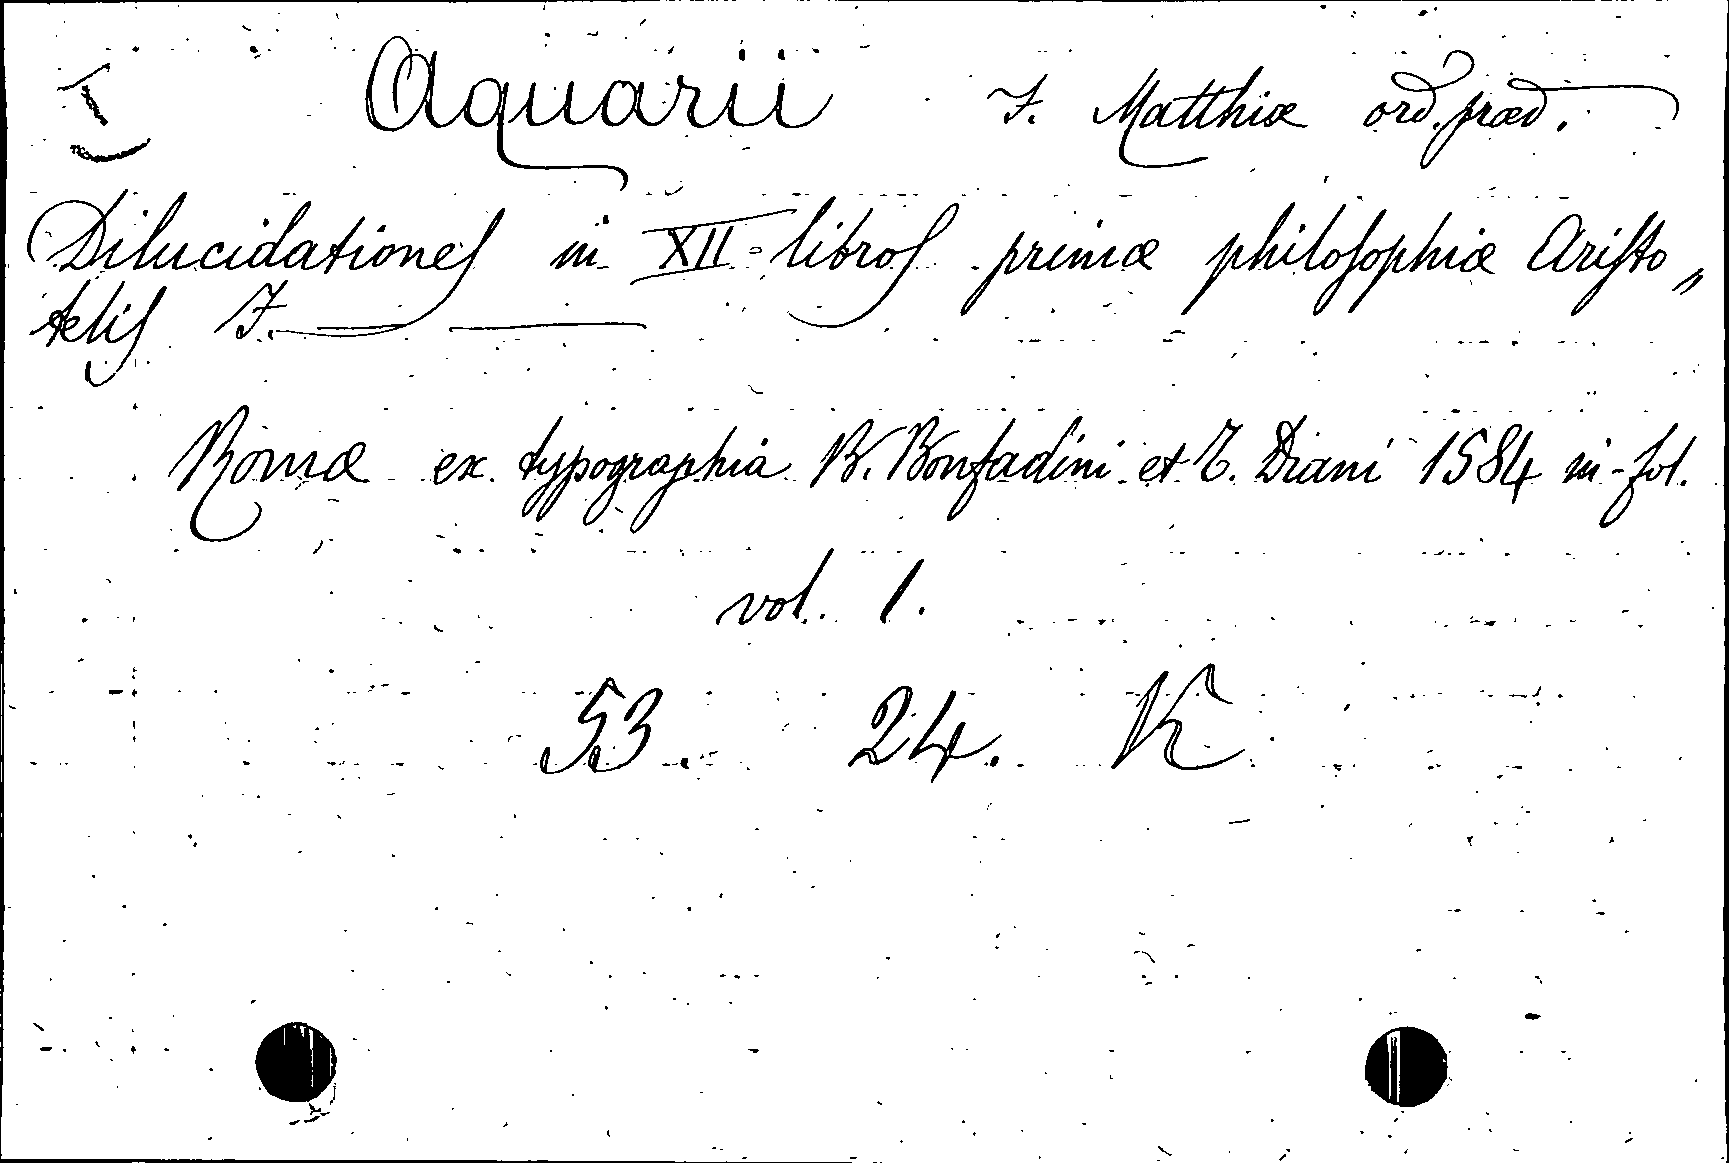 Aquarii F. Matthiæ ord. præd.
Dilucidationes in XII-libros primæ philosophiæ Aristo„
telis F.
Romæ ex typographia B. Bonfadini et T. Diani 1584 in-fol.
vol. 1.
53. 24. K